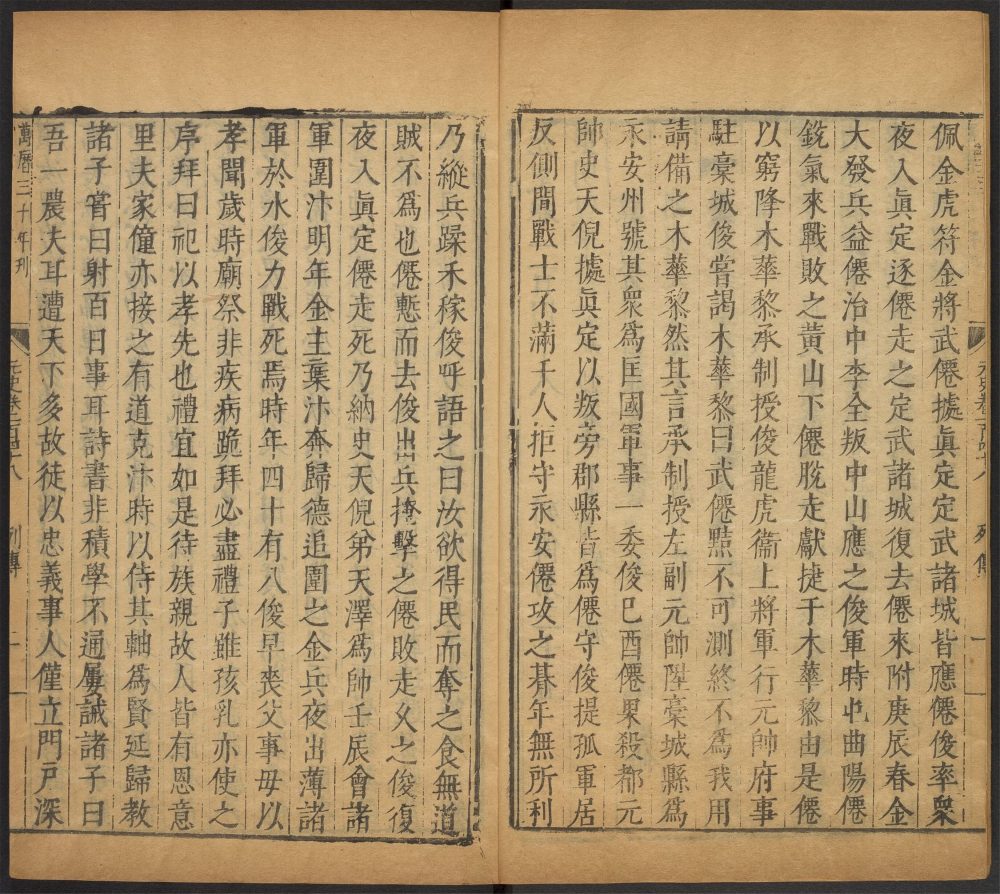 佩金虎符金將武僊據眞定定武諸城皆應僊俊率衆
夜入眞定逐僊走之定武諸城復去僊來附庚辰春金
大發兵益僊治中李全叛中山應之俊軍時屯曲陽僊
銳氣來戰敗之黃山下僊脫走獻捷于木華黎由是僊
以窮降木華黎承制授俊龍虎衞上將軍行元帥府事
駐藁城俊嘗謁木華黎曰武僊黠不可測終不爲我用
請備之木華黎然其言承制授左副元帥陞藁城縣爲
永安州號其衆爲匡國軍事一委俊巳酉僊果殺都元
帥史天倪據眞定以叛旁郡縣皆爲僊守俊提孤軍居
反側間戰士不滿千人拒守永安僊攻之朞年無所利
列傳
一
乃縱兵蹂禾稼俊呼語之曰汝欲得民而奪之食無道
賊不爲也僊慙而去俊出兵掩擊之僊敗走乆之俊復
夜入眞定僊走死乃納史天倪弟天澤爲帥壬辰會諸
軍圍汴明年金主棄汴奔歸德追圍之金兵夜出薄諸
軍於水俊力戰死焉時年四十有八俊早喪父事毋以
孝聞歲時廟祭非疾病跪拜必盡禮子雖孩乳亦使之
序拜曰祀以孝先也禮宜如是待族親故人皆有恩意
里夫家僮亦接之有道克汴時以侍其軸爲賢延歸教
諸子嘗曰射百日事耳詩書非積學不通屢誡諸子曰
吾一農夫耳遭天下多故徒以忠義事人僅立門戸深
萬曆三十年刊
列傳
一